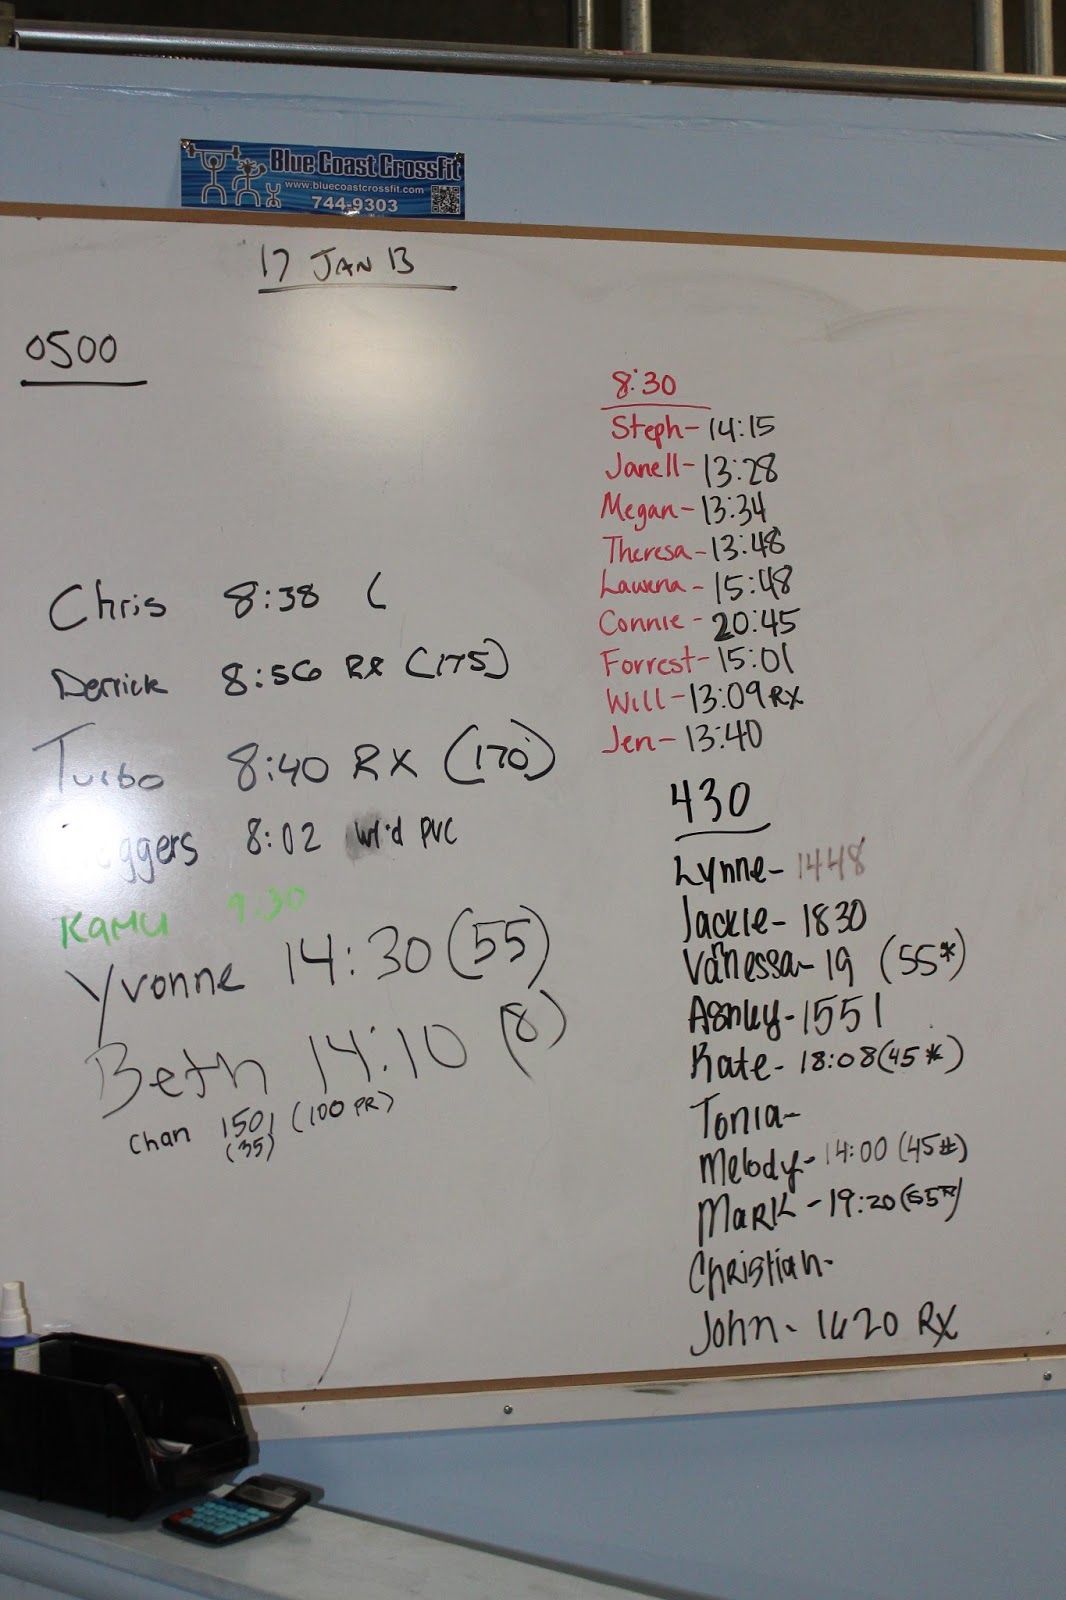 Blue Coast CrossFit
www.bluecoastcrossfit.com
744-9303
17 JAN 13
0500
Chris 8:38 (
Derrick 8:56 RX (175)
Turbo 8:40 RX (170)
8:02 PVC
KAMU 9:30
Yvonne 14:30 (55)
Beth 14:10 (8)
Chan 1501 (100 PR)
(35)
8:30
Steph- 14:15
Janell- 13:28
Megan- 13:34
Theresa- 13:48
Lawena- 15:48
Connie- 20:45
Forrest- 15:01
Will- 13:09 RX
Jen- 13:40
430
Lynne- 1448
Jackie- 1830
Vanessa- 19 (55*)
Ashley- 1551
Kate- 18:08 (45*)
Tonia-
Melody- 14:00 (45#)
Mark- 19:20 (55#)
Christian-
John- 1620 RX